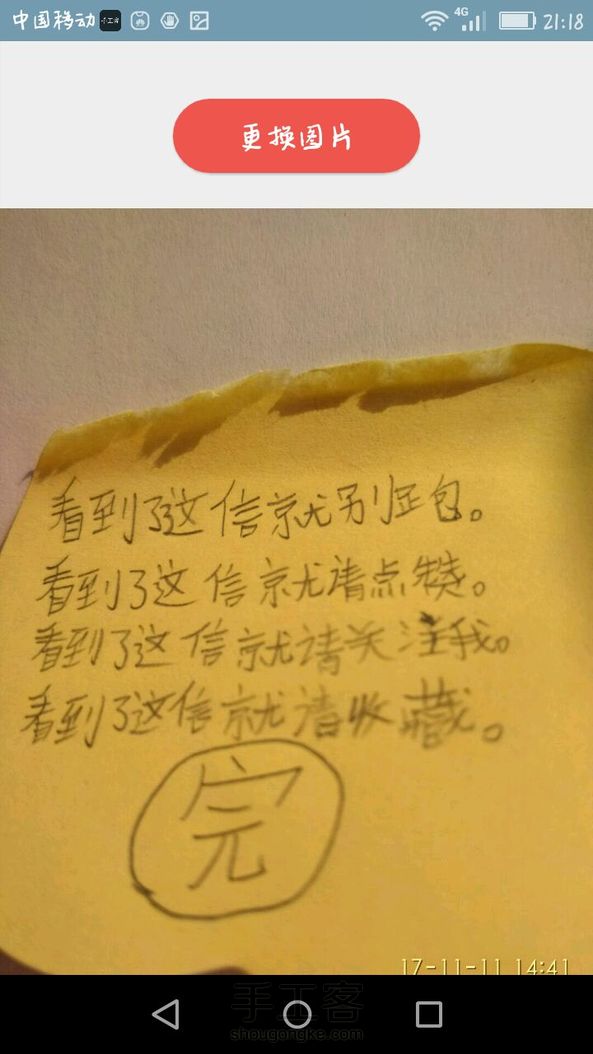 中国移动 4G 21:18
更换图片
看到了这信就别正包。
看到了这信就请点赞。
看到了这信就请关注我。
看到了这信就请收藏。
完
17-11-11 14:41
手工客
shougongke.com